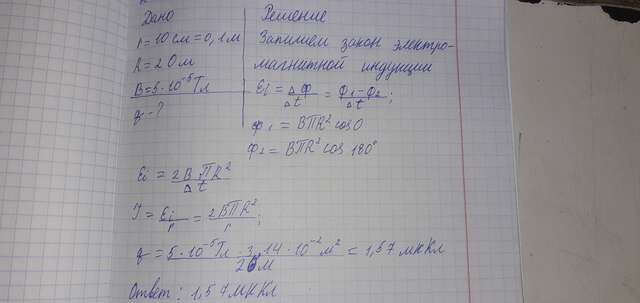 Дано
r=10см=0,1м
R=2Ом
B=5·10⁻⁵Тл
q-?
Решение
Запишем закон электро-
магнитной индукции
Ei = Δφ/Δt = Φ₁-Φ₂/Δt;
φ₁ = BПR² cos0
φ₂ = BПR² cos 180°
Ei = 2BПR²/Δt
J = Ei/r = 2BПR²/r;
q = 5·10⁻⁵Тл·3,14·10⁻²м²/2Ом = 1,57мкКл
Ответ: 1,57мкКл